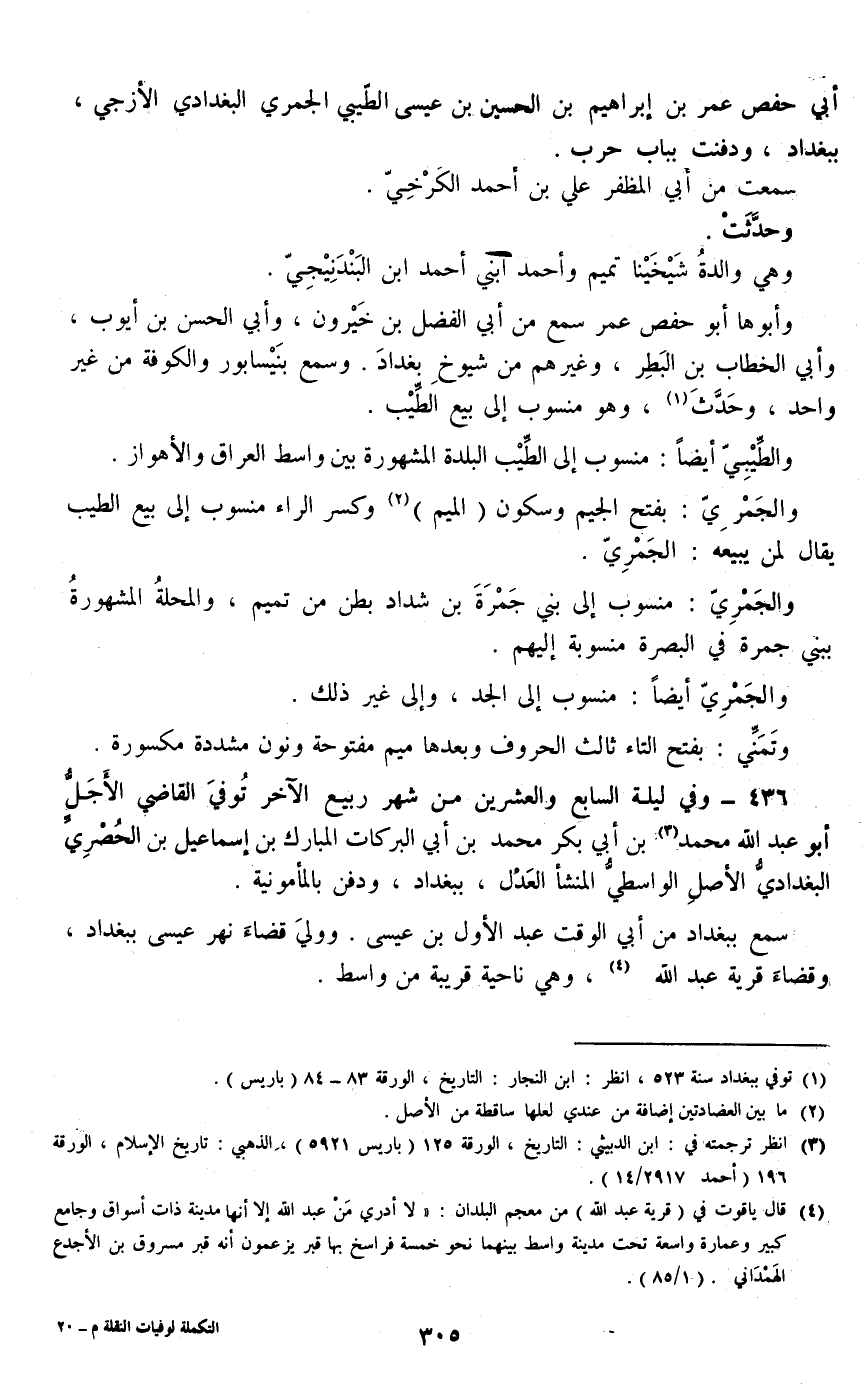 أبي حفص عمر بن إبراهيم بن الحسين بن عيسى الطّيبي الجمري البغدادي الأزجي ،
ببغداد ، ودفنت بباب حرب .
سمعت من أبي المظفر علي بن أحمد الكَرْخِيّ .
وحدَّثَتْ .
وهي والدةُ شَيْخَيْنا تميم وأحمد ابني أحمد ابن البَنْدَنِيْجِيّ .
وأبوها أبو حفص عمر سمع من أبي الفضل بن خَيْرون ، وأبي الحسن بن أيوب ،
وأبي الخطاب بن البَطِر ، وغيرهم من شيوخِ بغدادَ . وسمع بنَيْسابور والكوفة من غير
واحد ، وحَدَّثَ(١) ، وهو منسوب إلى بيع الطِّيْب .
والطِّيْبِيّ أيضاً : منسوب إلى الطِّيْب البلدة المشهورة بين واسط العراق والأهواز .
والجَمْرِيّ : بفتح الجيم وسكون ( الميم )(٢) وكسر الراء منسوب إلى بيع الطيب
يقال لمن يبيعه : الجَمْرِيّ .
والجَمْرِيّ : منسوب إلى بني جَمْرَةَ بن شداد بطن من تميم ، والمحلةُ المشهورةُ
ببني جمرة في البصرة منسوبة إليهم .
والجَمْرِيّ أيضاً : منسوب إلى الجد ، وإلى غير ذلك .
وتَمَنِّي : بفتح التاء ثالث الحروف وبعدها ميم مفتوحة ونون مشددة مكسورة .
٤٣٦ – وفي ليلة السابع والعشرين من شهر ربيع الآخر تُوفيَ القاضي الأَجَلُّ
أبو عبد الله محمد(٣) بن أبي بكر محمد بن أبي البركات المبارك بن إسماعيل بن الحُصْرِيِّ
البغداديُّ الأصلِ الواسطيُّ المنشأ العَدْل ، ببغداد ، ودفن بالمأمونية .
سمع ببغداد من أبي الوقت عبد الأول بن عيسى . ووليَ قضاءَ نهر عيسى ببغداد ،
وقضاءَ قرية عبد الله (٤) ، وهي ناحية قريبة من واسط .
(١) توفي ببغداد سنة ٥٢٣ ، انظر : ابن النجار : التاريخ ، الورقة ٨٣ – ٨٤ ( باريس ) .
(٢) ما بين العضادتين إضافة من عندي لعلها ساقطة من الأصل .
(٣) انظر ترجمته في : ابن الدبيثي : التاريخ ، الورقة ١٢٥ ( باريس ٥٩٢١ ) ، الذهبي : تاريخ الإسلام ، الورقة
١٩٦ ( أحمد ١٤/٢٩١٧ ) .
(٤) قال ياقوت في ( قرية عبد الله ) من معجم البلدان : « لا أدري مَنْ عبد الله إلا أنها مدينة ذات أسواق وجامع
كبير وعمارة واسعة تحت مدينة واسط بينهما نحو خمسة فراسخ بها قبر يزعمون أنه قبر مسروق بن الأجدع
الهَمْدَاني . ( ٨٥/١ ) .
٣٠٥
التكملة لوفيات النقلة م – ٢٠